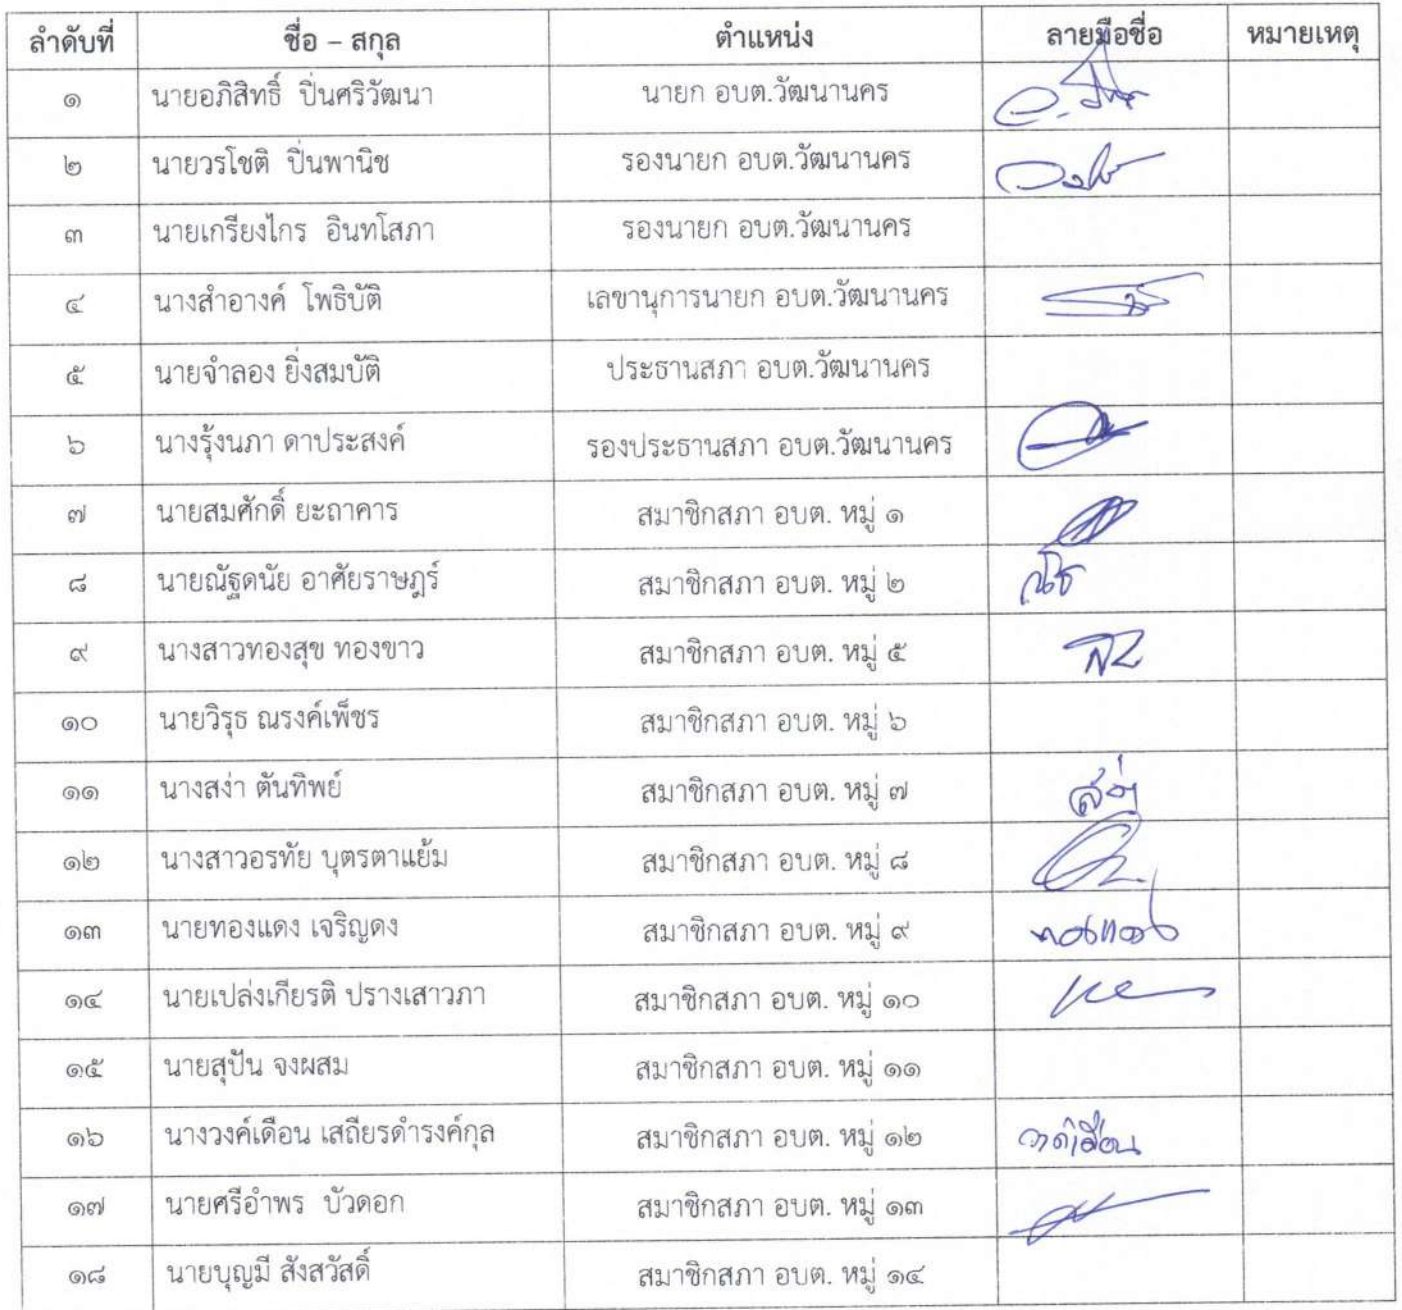 ลำดับที่ ชื่อ – สกุล ตำแหน่ง ลายมือชื่อ หมายเหตุ
๑ นายอภิสิทธิ์ ปิ่นศริวัฒนา นายก อบต.วัฒนานคร
๒ นายวรโชติ ปิ่นพานิช รองนายก อบต.วัฒนานคร
๓ นายเกรียงไกร อินทโสภา รองนายก อบต.วัฒนานคร
๔ นางสำอางค์ โพธิบัติ เลขานุการนายก อบต.วัฒนานคร
๕ นายจำลอง ยิ่งสมบัติ ประธานสภา อบต.วัฒนานคร
๖ นางรุ้งนภา ดาประสงค์ รองประธานสภา อบต.วัฒนานคร
๗ นายสมศักดิ์ ยะถาคาร สมาชิกสภา อบต. หมู่ ๑
๘ นายณัฐดนัย อาศัยราษฎร์ สมาชิกสภา อบต. หมู่ ๒
๙ นางสาวทองสุข ทองขาว สมาชิกสภา อบต. หมู่ ๕
๑๐ นายวิรุธ ณรงค์เพ็ชร สมาชิกสภา อบต. หมู่ ๖
๑๑ นางสง่า ตันทิพย์ สมาชิกสภา อบต. หมู่ ๗
๑๒ นางสาวอรทัย บุตรตาแย้ม สมาชิกสภา อบต. หมู่ ๘
๑๓ นายทองแดง เจริญดง สมาชิกสภา อบต. หมู่ ๙ ทองแดง
๑๔ นายเปล่งเกียรติ ปรางเสาวภา สมาชิกสภา อบต. หมู่ ๑๐
๑๕ นายสุปัน จงผสม สมาชิกสภา อบต. หมู่ ๑๑
๑๖ นางวงค์เดือน เสถียรดำรงค์กุล สมาชิกสภา อบต. หมู่ ๑๒
๑๗ นายศรีอำพร บัวดอก สมาชิกสภา อบต. หมู่ ๑๓
๑๘ นายบุญมี สังสวัสดิ์ สมาชิกสภา อบต. หมู่ ๑๔